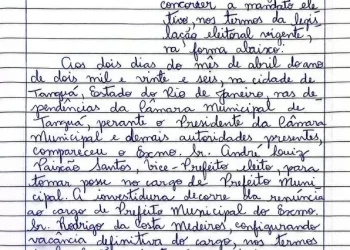 concorrer a mandato ele-
tivo, nos termos da legis-
lação eleitoral vigente,
na forma abaixo.
Aos dois dias do mês de abril do ano
de dois mil e vinte e seis, na cidade de
Tanguá, Estado do Rio de Janeiro, nas de-
pendências da Câmara Municipal de
Tanguá, perante o Presidente da Câmara
Municipal e demais autoridades presentes,
compareceu o Exmo. Sr. André Luiz
Paixão Santos, Vice-Prefeito eleito, para
tomar posse no cargo de Prefeito Muni-
cipal. A investidura decorre da renúncia
ao cargo de Prefeito Municipal do Exmo.
Sr. Rodrigo da Costa Medeiros, configurando
vacância definitiva do cargo, nos termos